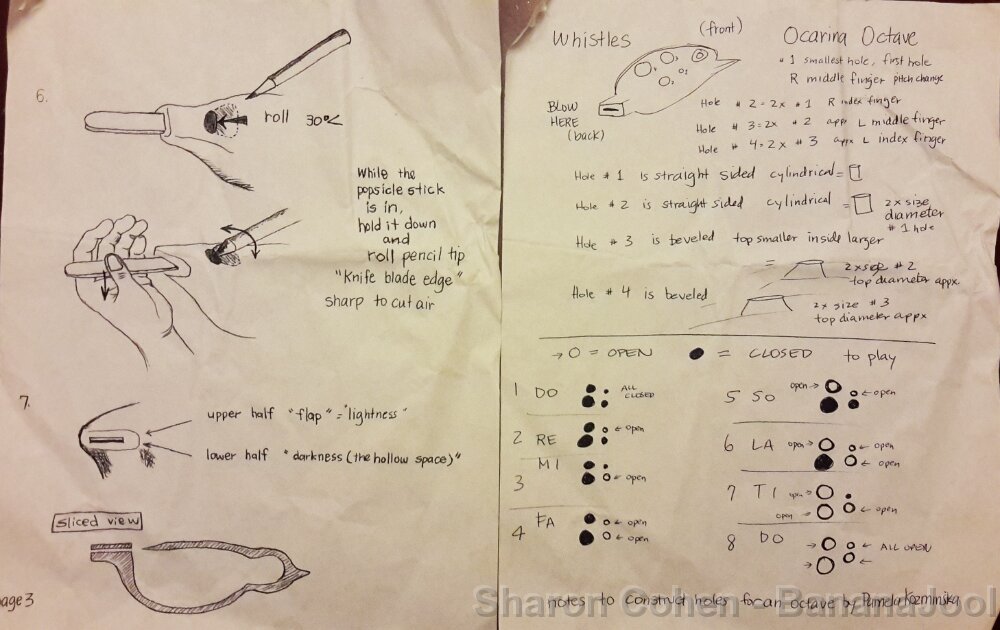 6.
roll 30°
While the
popsicle stick
is in,
hold it down
and
roll pencil tip
"Knife blade edge"
sharp to cut air
7.
upper half "flap" = "lightness"
lower half "darkness (the hollow space)"
sliced view
page 3
Whistles (front) Ocarina Octave
#1 smallest hole, first hole
R middle finger pitch change
BLOW
HERE
(back)
Hole #2 = 2x #1 R index finger
Hole #3 = 2x #2 appx L middle finger
Hole #4 = 2x #3 appx L index finger
Hole #1 is straight sided cylindrical =
Hole #2 is straight sided cylindrical = 2x size
diameter
#1 hole
Hole #3 is beveled top smaller inside larger
= 2x side #2
top diameter appx.
Hole #4 is beveled
2x size #3
top diameter appx
→ O = OPEN ● = CLOSED to play
1 DO ALL
CLOSED
2 RE ← open
3 MI ← open
4 FA ← open
← open
5 SO open → ← open
6 LA open → ← open
← open
7 TI open →
open → ← open
8 DO → ← ALL OPEN
→ ←
notes to construct holes for an octave by Pamela Kozminska
Sharon Cohen - BananaJool